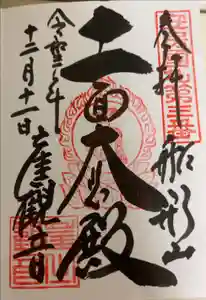 奉拝
船形山
十一面大悲殿
令和三年
十二月十一日
崖観音